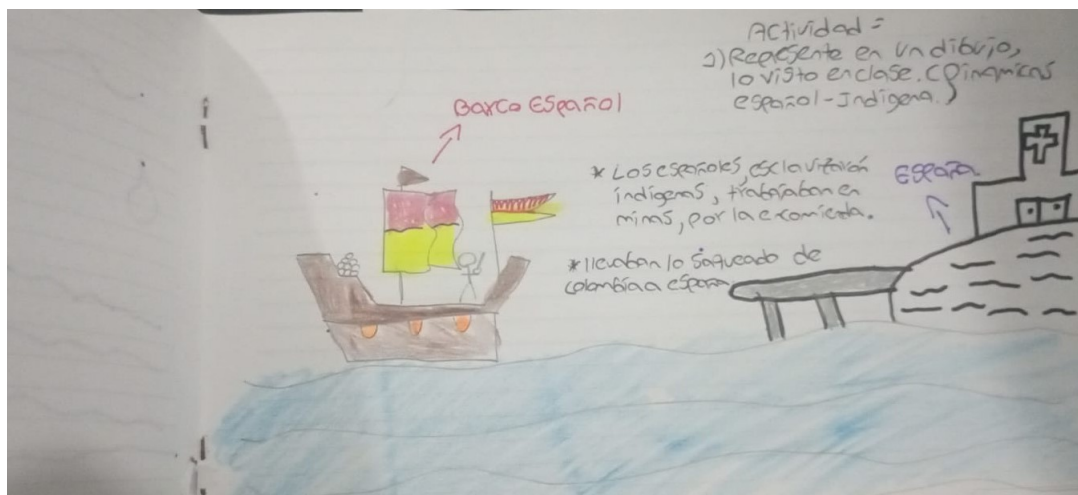 Actividad =
1) Represente en un dibujo,
lo visto en clase. (Dinamicas
español-Indigena.)
Barco Español
* Los españoles, esclavizaron
indigenas, trabajaban en
minas, por la encomienda.
* llevaban lo saqueado de
colombia a españa
España